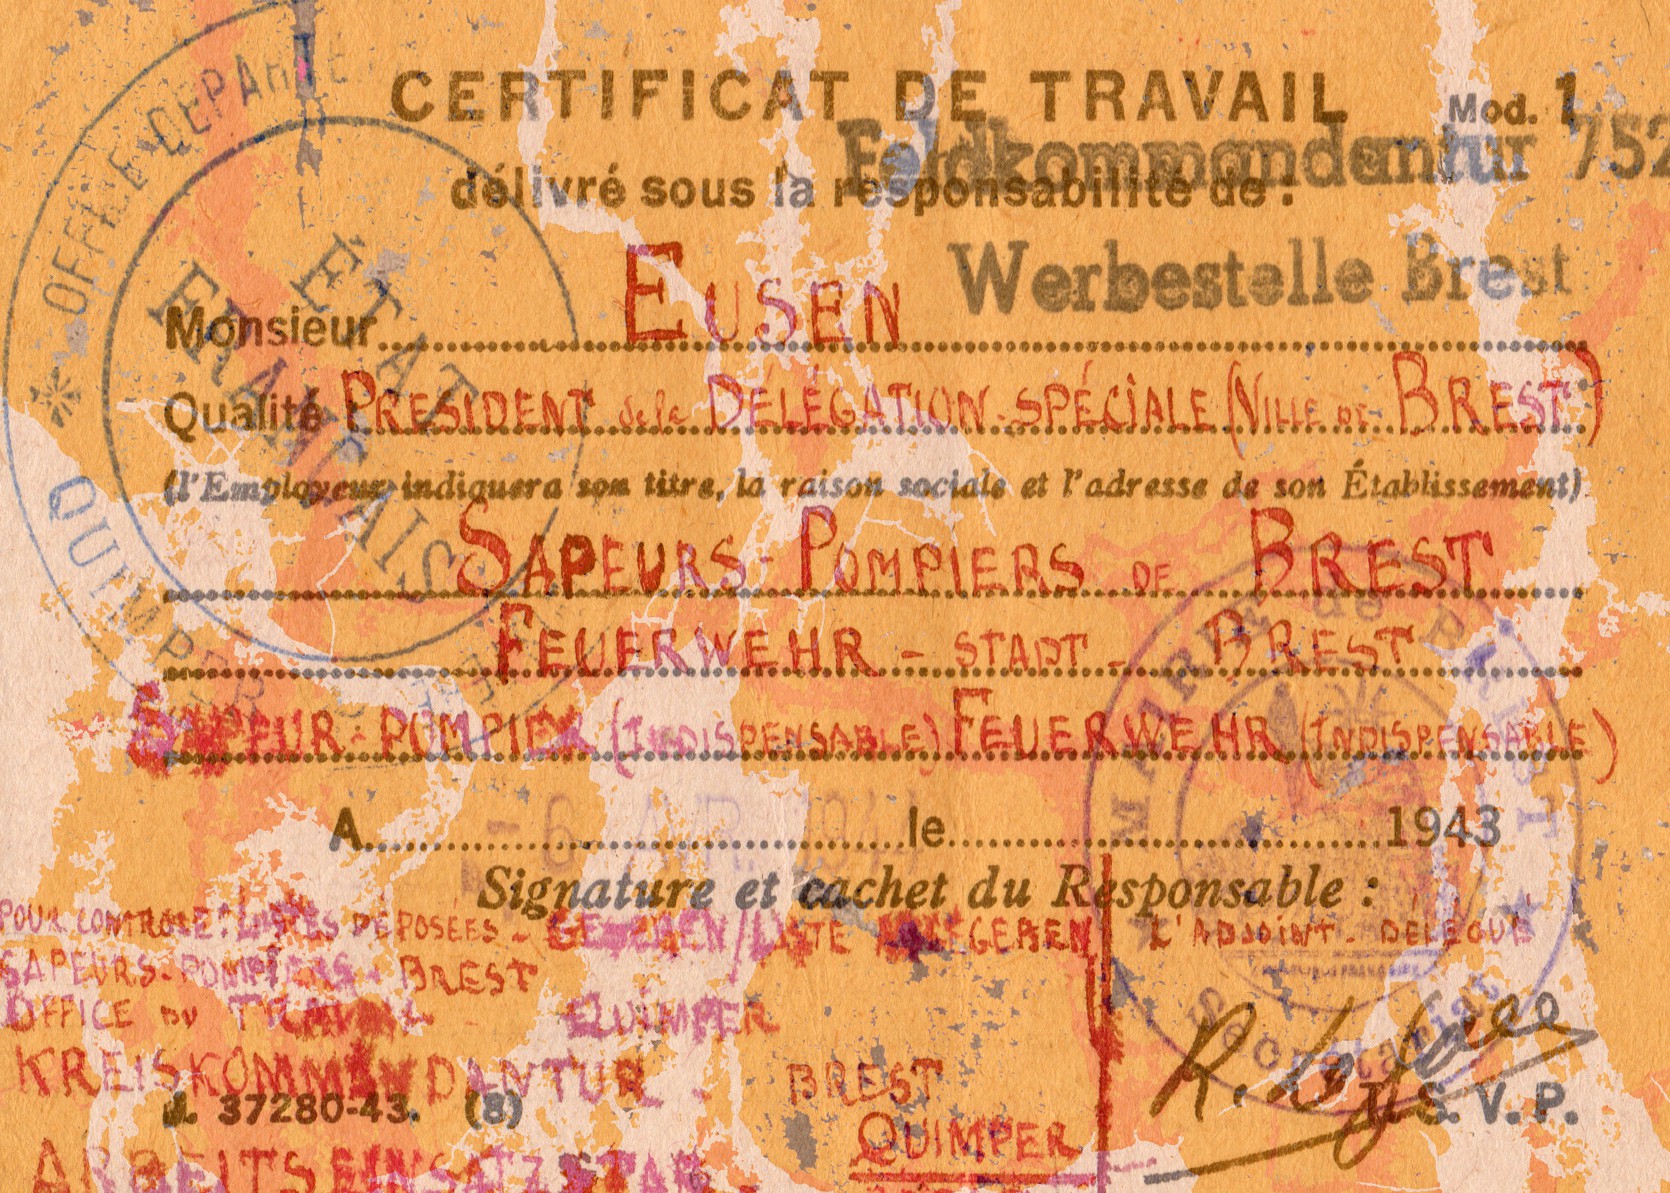 CERTIFICAT DE TRAVAIL Mod. 1
Feldkommandantur 752
délivré sous la responsabilité de :
Werbestelle Brest
Monsieur EUSEN
Qualité PRESIDENT de la DÉLÉGATION-SPÉCIALE (VILLE DE BREST)
(l'Employeur indiquera son titre, la raison sociale et l'adresse de son Établissement)
SAPEURS-POMPIERS DE BREST
FEUERWEHR - STADT - BREST
SAPEUR-POMPIER (INDISPENSABLE) FEUERWEHR (INDISPENSABLE)
-6 AVR. 1944
A le 1943
Signature et cachet du Responsable :
POUR CONTROLE: LISTES DÉPOSÉES - GESEHEN/LISTE
SAPEURS-POMPIERS - BREST
OFFICE DU TRAVAIL - QUIMPER
KREISKOMMANDANTUR - BREST
J. 37280-43. (8)
QUIMPER
ARBEITSEINSATZSTAB
L'ADJOINT-DELEGUÉ
T. S. V. P.
OFFICE DEPARTE
QUIMPER
ÉTAT FRANÇAIS
MAIRIE de BREST
Secrétariat